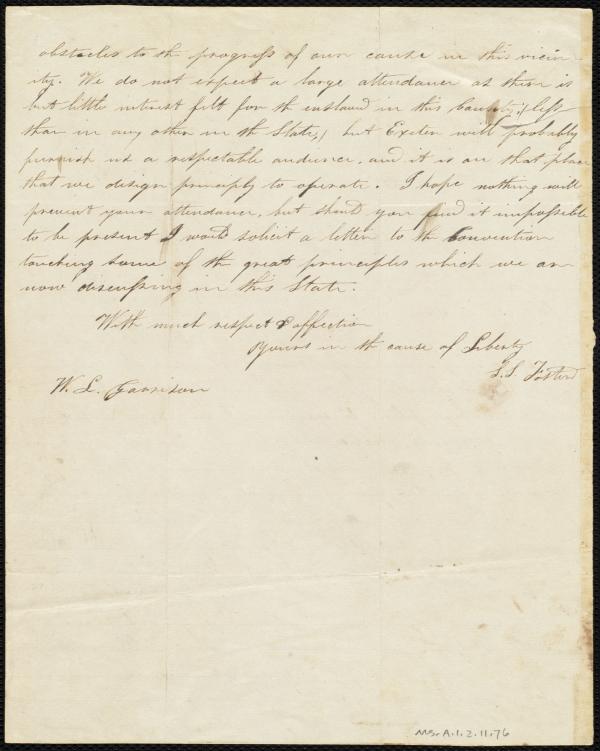 obstacles to th progress of our cause in this vicin-
ity. We do not expect a large attendance as there is
but little interest felt for th enslaved in this County, (less
than in any other in th State,) but Exeter will probably
furnish us a respectable audience, and it is on that place
that we design principly to operate. I hope nothing will
prevent your attendance, but should you find it impossible
to be present I would solicit a letter to th Convention
touching some of th great principles which we are
now discussing in this State.
With much respect & affection
Yours in th cause of Liberty
S. S. Foster
W. L. Garrison
MS.A.1.2.11.76